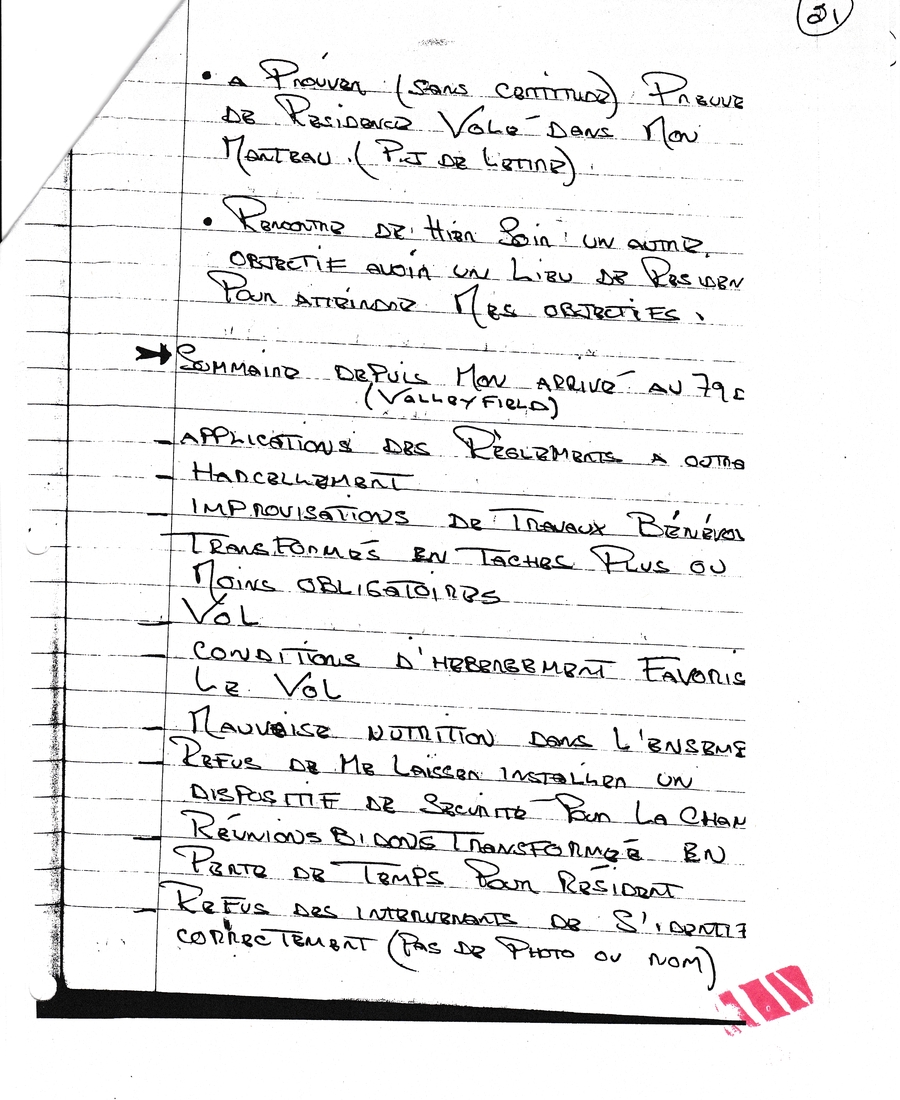 21
• A PROUVER (SANS CERTITUDE) PREUVE
DE RESIDENCE VOLÉ DANS MON
MANTEAU. (P.J DE LETTRE).
• RENCONTRE DE HIER SOIR: UN AUTRE
OBJECTIF AVOIR UN LIEU DE RESIDEN
POUR ATTEINDRE MES OBJECTIFS.
→ SOMMAIRE DEPUIS MON ARRIVÉ AU 79E
(VALLEYFIELD)
- APPLICATIONS DES RÈGLEMENTS A OUTRE
- HARCELLEMENT
- IMPROVISATIONS DE TRAVAUX BÉNÉVOL
TRANSFORMÉS EN TACHES PLUS OU
MOINS OBLIGATOIRES
- VOL
- CONDITIONS D'HEBERGEMENT FAVORIS
LE VOL
- MAUVAISE NUTRITION DANS L'ENSEMB
- REFUS DE ME LAISSER INSTALLER UN
DISPOSITIF DE SECURITÉ POUR LA CHAM
- RÉUNIONS BIDONS TRANSFORMÉE EN
PERTE DE TEMPS POUR RÉSIDENT
- REFUS DES INTERVENANTS DE S'IDENTIF
CORRECTEMENT (PAS DE PHOTO OU NOM)